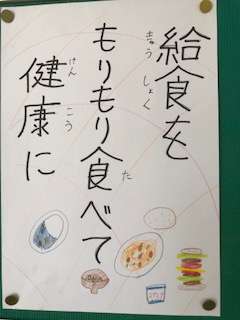 給食を
きゅうしょく
もりもり食べて
た
健康に
けんこう